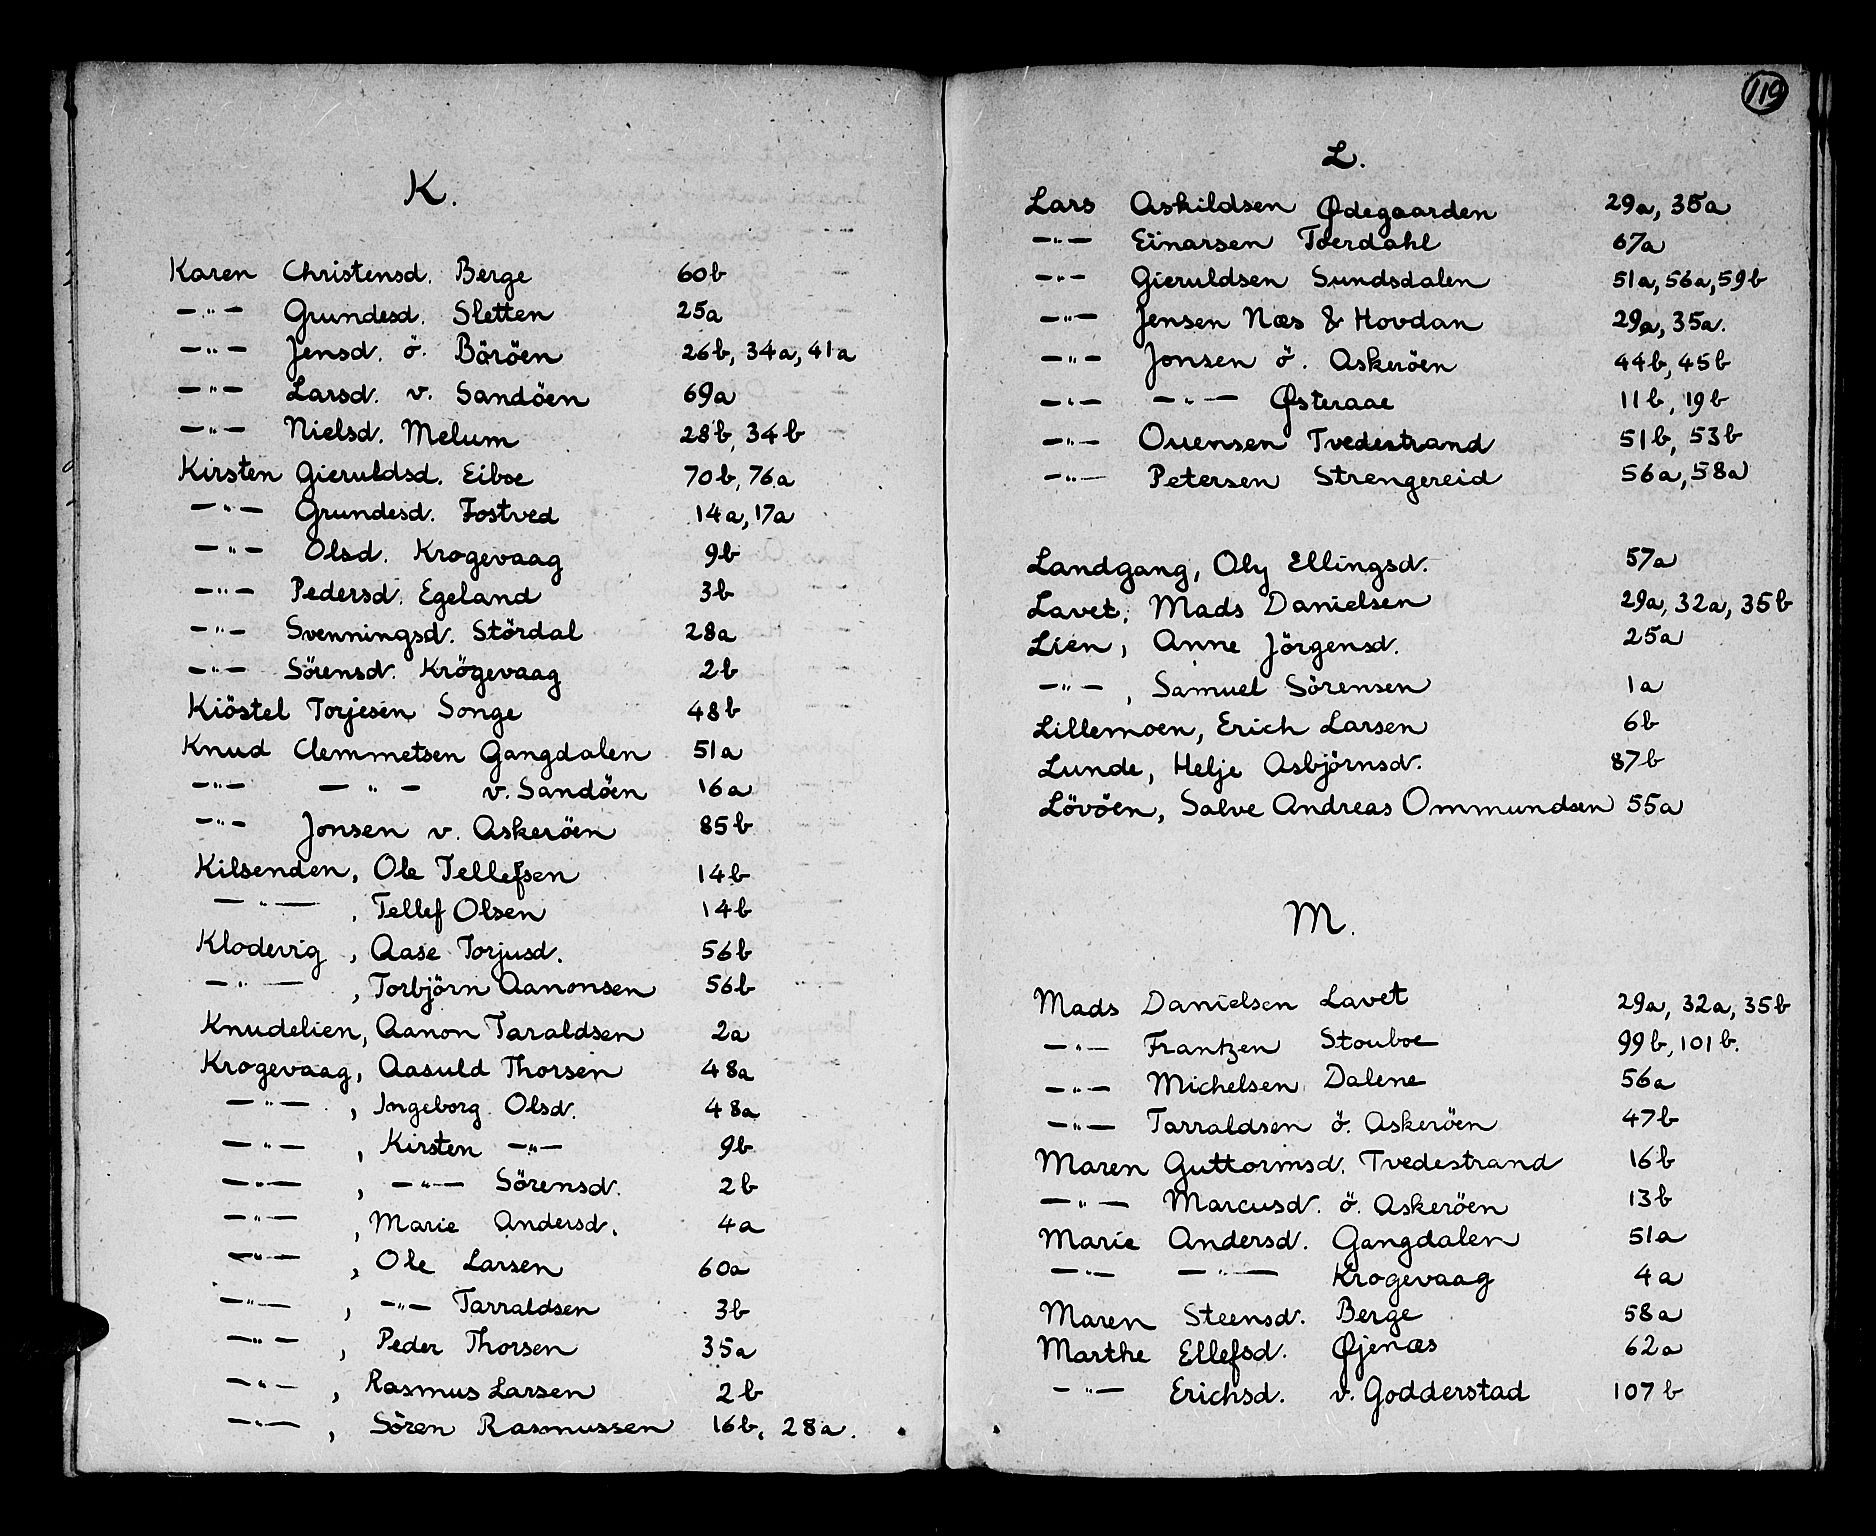 K.
Karen Christensd. Berge 60b
—"— Grundesd. Sletten 25a
—"— Jensd. ö. Böröen 26b, 34a, 41a
—"— Larsd. v. Sandöen 69a
—"— Nielsd. Melum 28b, 34b
Kirsten Gieruldsd. Eiboe 70b, 76a
—"— Grundesd. Fostved 14a, 17a
—"— Olsd. Krogevaag 9b
—"— Pedersd. Egeland 3b
—"— Svenningsd. Stördal 28a
—"— Sörensd. Krögevaag 2b
Kiöstel Torjesen Songe 48b
Knud Clemmetsen Gangdalen 51a
—"— —"— v. Sandöen 16a
—"— Jonsen v. Askeröen 85b
Kilsenden, Ole Tellefsen 14b
—"— , Tellef Olsen 14b
Klodevig , Aase Torjusd. 56b
—"— , Torbjörn Aanonsen 56b
Knudelien, Aanon Taraldsen 2a
Krogevaag, Aasuld Thorsen 48a
—"— , Ingeborg Olsd. 48a
—"— , Kirsten —"— 9b
—"— , —"— Sörensd. 2b
—"— , Marie Andersd. 4a
—"— , Ole Larsen 60a
—"— , —"— Tarraldsen 3b
—"— , Peder Thorsen 35a
—"— , Rasmus Larsen 2b
—"— , Sören Rasmussen 16b, 28a.
119
L.
Lars Askildsen Ødegaarden 29a, 35a
—"— Einarsen Tverdahl 67a
—"— Gieruldsen Sundsdalen 51a, 56a, 59b
—"— Jensen Næs & Hovdan 29a, 35a.
—"— Jonsen ö. Askeröen 44b, 45b
—"— —"— Østeraae 11b, 19b
—"— Ouensen Tvedestrand 51b, 53b
—"— Petersen Strengereid 56a, 58a
Landgang, Oly Ellingsd. 57a
Lavet, Mads Danielsen 29a, 32a, 35b
Lien, Anne Jörgensd. 25a
—"— , Samuel Sörensen 1a
Lillemoen, Erich Larsen 6b
Lunde, Helje Asbjörnsd. 87b
Lövöen, Salve Andreas Ommundsen 55a
M.
Mads Danielsen Lavet 29a, 32a, 35b
—"— Frantzen Stouboe 99b, 101b.
—"— Michelsen Dalene 56a
—"— Tarraldsen ö. Askeröen 47b
Maren Guttormsd. Tvedestrand 16b
—"— Marcusd. ö. Askeröen 13b
Marie Andersd. Gangdalen 51a
—"— —"— Krogevaag 4a
Maren Steensd. Berge 58a
Marthe Ellefsd. Øjenæs 62a
—"— Erichsd. v. Godderstad 107b